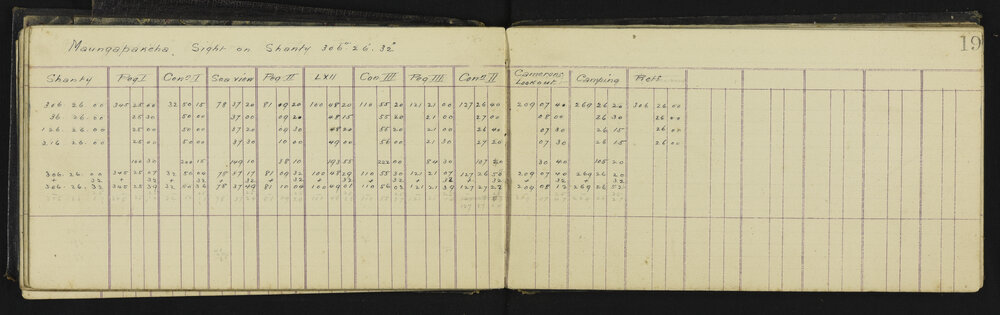 19
Maungapakeha Sight on Shanty 306° 26' 32"
Shanty Peg I Conn I Sea view Peg II LXII Con III Peg III Conn II Camerons Lookout Camping Refs
306. 26. 00 345 25 00 32 50 15 78 37 20 81 09 20 100 48 20 110 55 20 121 21 00 127 26 40 209 07 40 269 26 20 306 26 00
36 26. 00 25 30 50 00 37 00 09 20 48 15 55 20 21 00 27 00 08 00 26 30 26 00
126. 26. 00 25 00 50 00 37 20 09 30 48 20 55 20 21 00 26 40 07 30 26 15 26 00
216 26. 00 25 00 50 00 37 30 10 00 49 00 56 00 21 30 27 20 07 30 26 15 26 00
100 30 200 15 149 10 38 10 193 55 222 00 84 30 107 30 40 105 20
306. 26. 00 345 25 07 32 50 04 78 37 17 81 09 32 100 48 29 110 55 30 121 21 07 127 26 50 209 07 40 269 26 20
+ 32 + 32 + 32 + 32 + 32 + 32 + 32 + 32 + 32 + 32
306. 26. 32 345 25 39 32 50 36 78 37 49 81 10 04 100 49 01 110 56 02 121 21 39 127 27 22 209 08 12 269 26 52